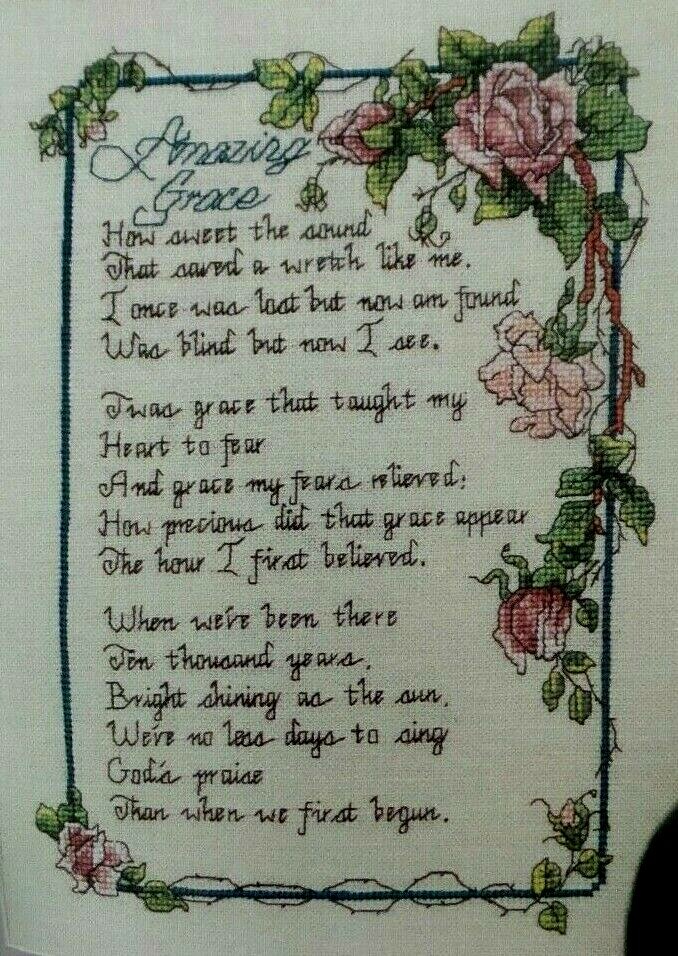 Amazing
Grace
How sweet the sound
That saved a wretch like me.
I once was lost but now am found
Was blind but now I see.
Twas grace that taught my
Heart to fear
And grace my fears relieved;
How precious did that grace appear
The hour I first believed.
When we've been there
Ten thousand years,
Bright shining as the sun,
We've no less days to sing
God's praise
Than when we first begun.